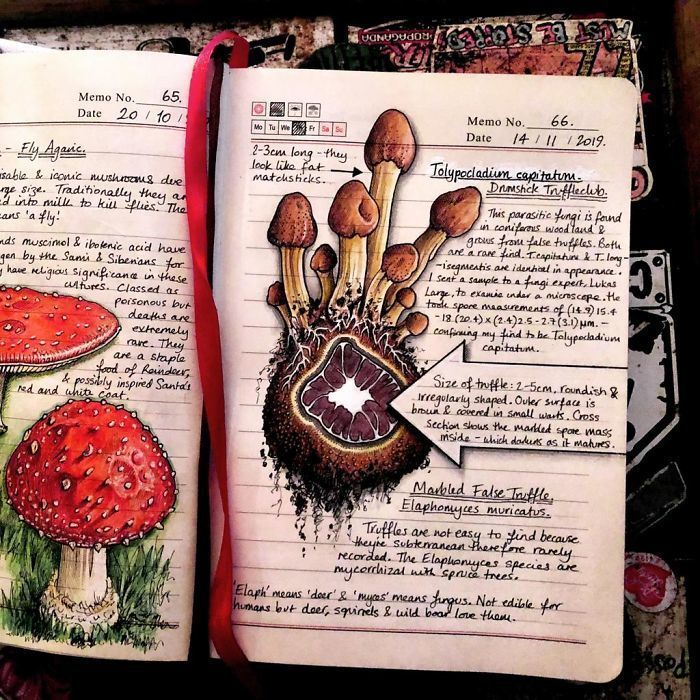 Memo No. 65.
Date 20/10/
- Fly Agaric.
isable & iconic mushrooms due
rge size. Traditionally they are
d into milk to kill flies. The
eans 'a fly'.
nds muscimol & ibotenic acid have
gen by the Sami & Siberians for
y have religious significance in these
cultures. Classed as
poisonous but
deaths are
extremely
rare. They
are a staple
food of Reindeer,
& possibly inspired Santa's
red and white coat.
Mo Tu We Fr Sa Su
Memo No. 66.
Date 14/11/2019.
2-3cm long - they
look like fat
matchsticks.
Tolypocladium capitatum.
Drumstick Truffleclub.
This parasitic fungi is found
in coniferous woodland &
grows from false truffles. Both
are a rare find. T. capitatum & T. long-
-isegmentis are identical in appearance.
I sent a sample to a fungi expert, Lukas
Large, to examine under a microscope. He
took spore measurements of (14.9) 15.4
-18 (20.4) x (2.4) 2.5 - 2.7 (3.1) µm. -
confirming my find to be Tolypocladium
capitatum.
Size of truffle: 2-5cm, roundish &
irregularly shaped. Outer surface is
brown & covered in small warts. Cross
Section shows the marbled spore mass
inside - which darkens as it matures.
Marbled False Truffle,
Elaphomyces muricatus.
Truffles are not easy to find because
they're subterranean therefore rarely
recorded. The Elaphomyces species are
mycorrhizal with spruce trees.
'Elaph' means 'deer' & 'myces' means fungus. Not edible for
humans but deer, squirrels & wild boar love them.
MUST BE STOPPED
PROPAGANDA